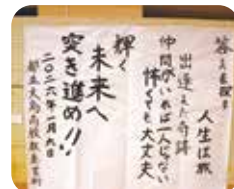 答えを探す
人生は旅
出逢えた奇跡
仲間がいれば一人じゃない
怖くても大丈夫
輝く
未来へ
突き進め!!
二〇二六年一月九日